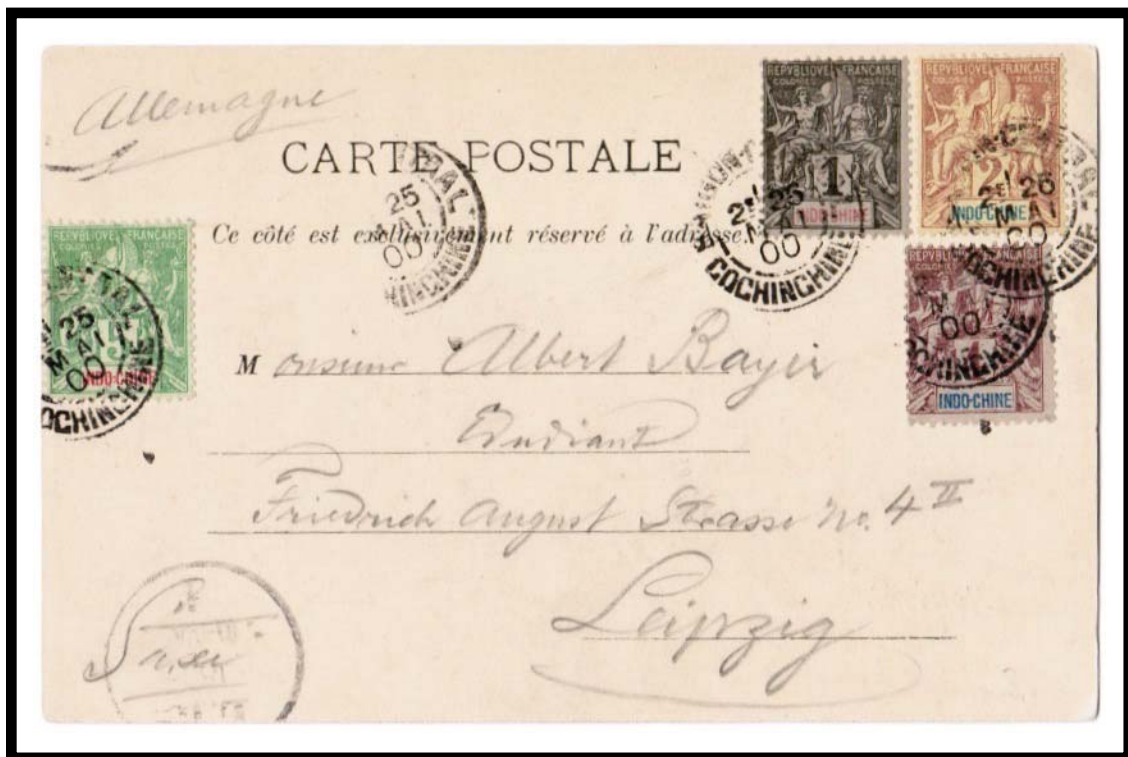 Allemagne
CARTE POSTALE
Ce côté est exclusivement réservé à l'adresse.
REPUBLIQUE FRANÇAISE
COLONIES POSTES
1
INDO-CHINE
REPUBLIQUE FRANÇAISE
COLONIES POSTES
2
INDO-CHINE
REPUBLIQUE FRANÇAISE
COLONIES POSTES
5
INDO-CHINE
REPUBLIQUE FRANÇAISE
4
INDO-CHINE
25
MAI
00
COCHINCHINE
25
MAI
00
COCHINCHINE
2E 25
MAI
00
COCHINCHINE
2E 25
MAI
00
COCHINCHINE
MAI
00
COCHINCHINE
Monsieur Albert Bayer
Etudiant
Friedrich August Strasse No. 4 II
Leipzig